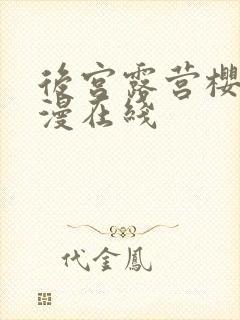 後宮露营櫻
漫在綫
代金鳳